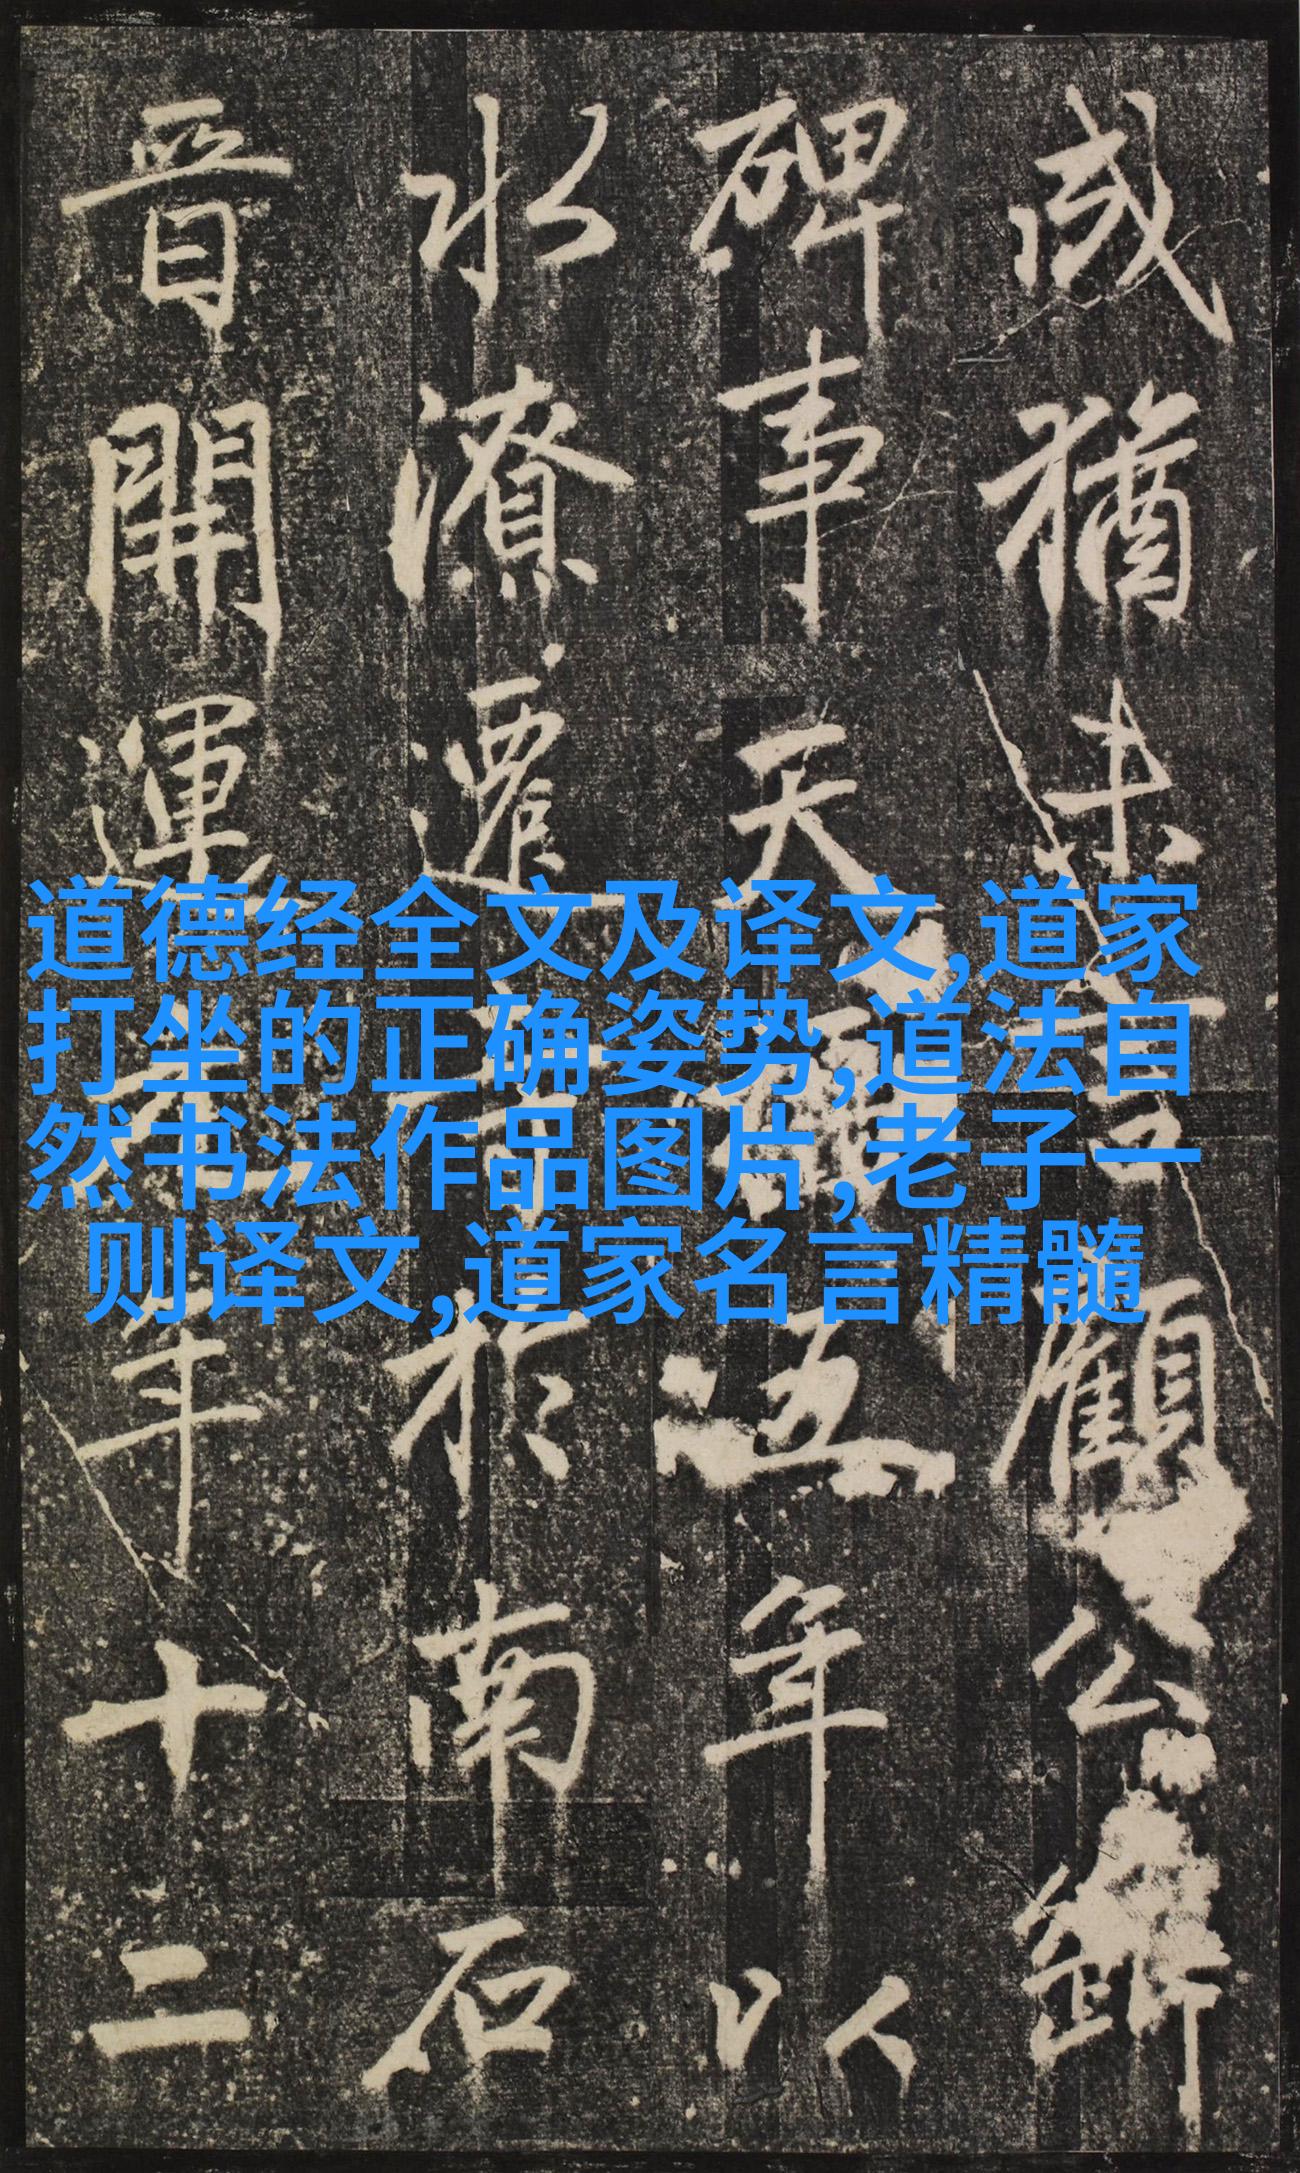 猶未言顧公
碑事天福五年以
水潦遷於南石
晉開運元年十二
道德经全文及译文,道家
打坐的正确姿势,道法自
然书法作品图片,老子一
则译文,道家名言精髓